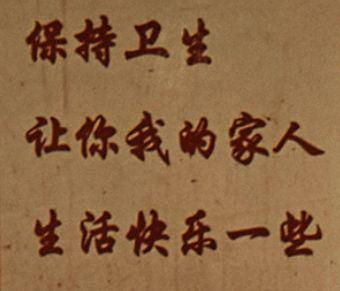 保持卫生
让你我的家人
生活快乐一些